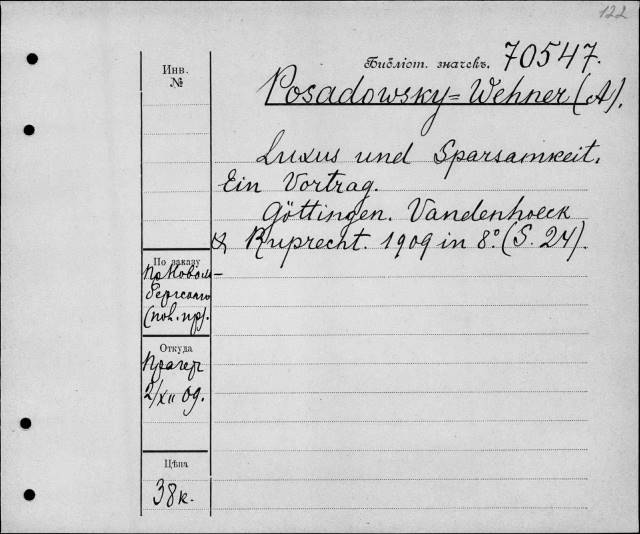 122
Библіот. значекъ. 70547.
Инв.
№
Posadowsky=Wehner (A).
Luxus und Sparsamkeit.
Ein Vortrag.
Göttingen. Vandenhoeck
& Ruprecht. 1909 in 8°. (S. 24).
По заказу
(пол. пр).
Откуда
Прагер
2/XII 09.
Цѣна
38 к.